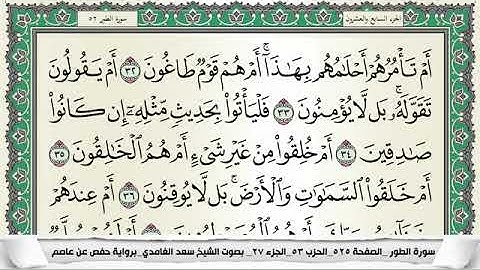 الجزء السابع والعشرون
سورة الطور ٥٢
أَمْ تَأْمُرُهُمْ أَحْلَٰمُهُم بِهَٰذَآ ۚ أَمْ هُمْ قَوْمٌ طَاغُونَ ٣٢ أَمْ يَقُولُونَ
تَقَوَّلَهُۥ ۚ بَل لَّا يُؤْمِنُونَ ٣٣ فَلْيَأْتُوا۟ بِحَدِيثٍ مِّثْلِهِۦٓ إِن كَانُوا۟
صَٰدِقِينَ ٣٤ أَمْ خُلِقُوا۟ مِنْ غَيْرِ شَىْءٍ أَمْ هُمُ ٱلْخَٰلِقُونَ ٣٥
أَمْ خَلَقُوا۟ ٱلسَّمَٰوَٰتِ وَٱلْأَرْضَ ۚ بَل لَّا يُوقِنُونَ ٣٦ أَمْ عِندَهُمْ
سورة الطور _الصفحة ٥٢٥_الحزب ٥٣_الجزء ٢٧_ بصوت الشيخ سعد الغامدي_برواية حفص عن عاصم